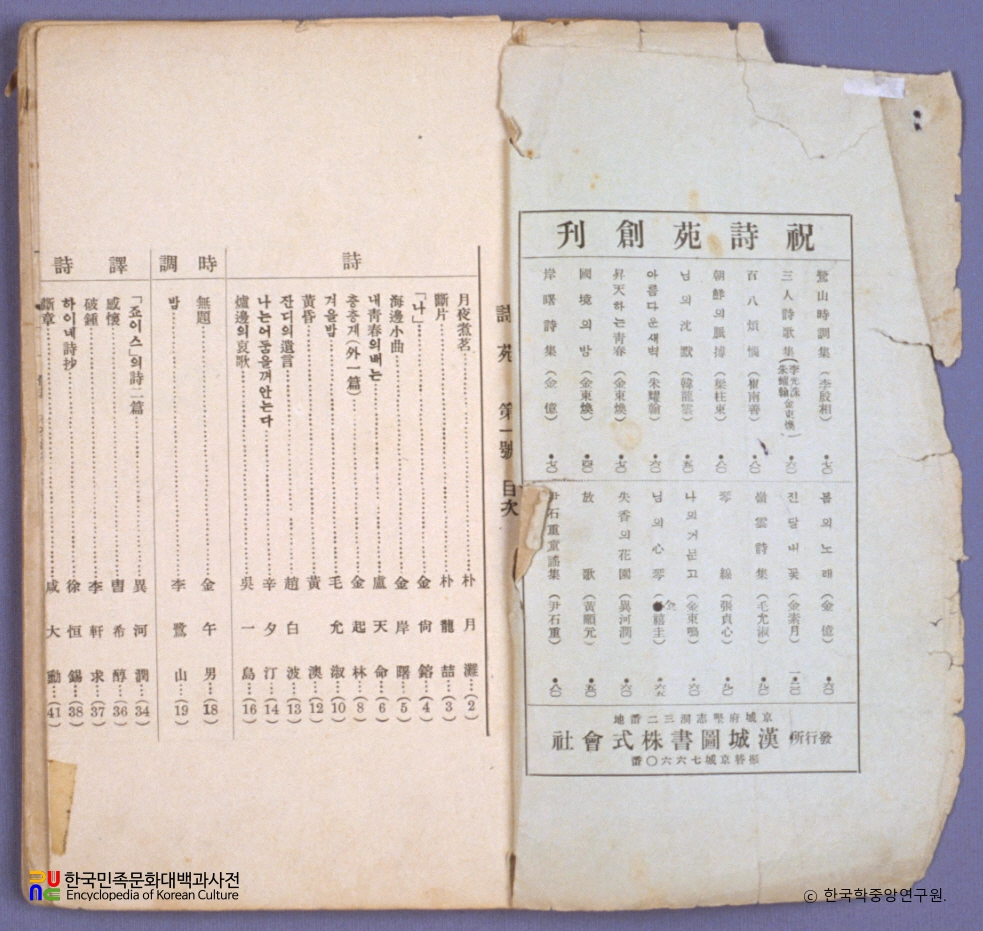 祝詩苑創刊
鷺山時調集(李殷相)
三人詩歌集(李光洙 朱耀翰 金東煥)
百八煩惱(崔南善)
朝鮮의脈搏(梁柱東)
님의沈默(韓龍雲)
아름다운새벽(朱耀翰)
昇天하는靑春(金東煥)
國境의밤(金東煥)
岸曙詩集(金億)
봄의노래(金億)
진달내꽃(金素月)
嶺雲詩集(毛允淑)
琴線(張貞心)
나의거문고(金東鳴)
님의心琴(金禧圭)
失香의花園(異河潤)
放歌(黃順元)
尹石重童謠集(尹石重)
京城府堅志洞三二番地
發行所 漢城圖書株式會社
振替京城七六六〇番
詩苑 第一號 目次
詩
月夜煮茗……朴月灘…(2)
斷片……朴龍喆…(3)
「나」……金尙鎔…(4)
海邊小曲……金岸曙…(5)
내靑春의배는……盧天命…(6)
층층게(外一篇)……金起林…(8)
겨울밤……毛允淑…(10)
黃昏……黃澳…(12)
잔디의遺言……趙白波…(13)
나는어둠을껴안는다……辛夕汀…(14)
爐邊의哀歌……吳一島…(16)
時調
無題……金午男…(18)
밤……李鷺山…(19)
譯詩
「쪼이스」의詩二篇……異河潤…(34)
感懷……曺希醇…(36)
破鍾……李軒求…(37)
하이네詩抄……徐恒錫…(38)
斷章……咸大勳…(41)
한국민족문화대백과사전
Encyclopedia of Korean Culture
© 한국학중앙연구원.